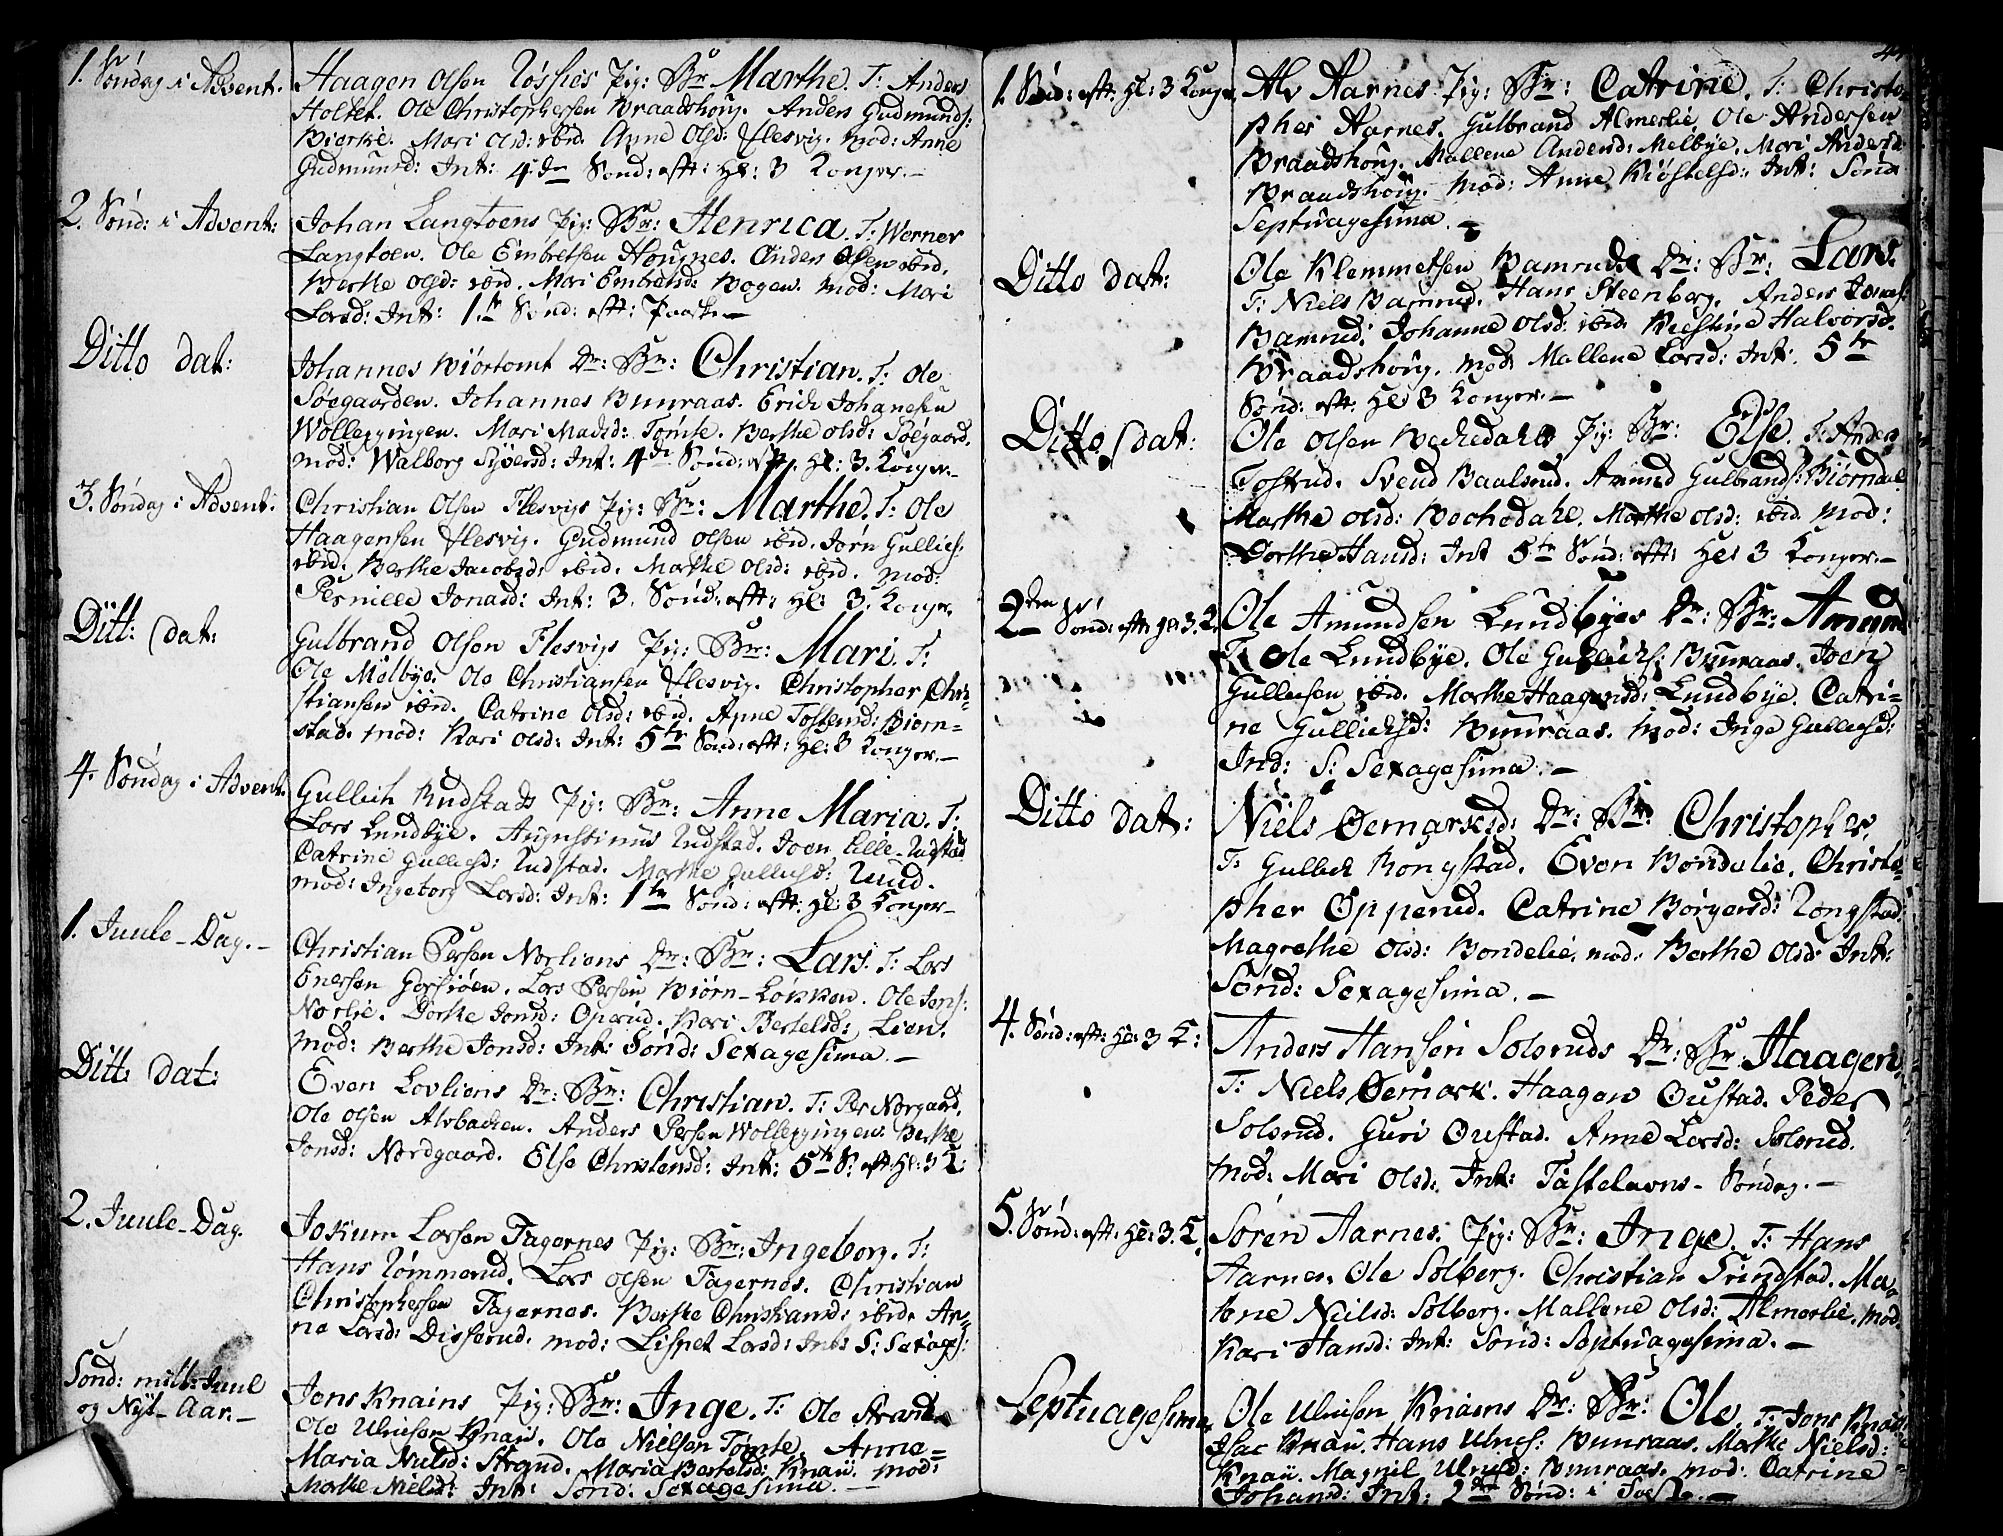 1. Søndag i Advent.
Haagen Olsen Røssies Pig: Br: Marthe. T: Anders
Holtet. Ole Christophersen Braadshoug. Anders Gudmunds:
Bierke. Mari Olsd: ibid. Anne Olsd: Flesvig. Mod: Anne
Gudmunsd: Int: 4de Sønd: eft: Hl: 3 Konger.
2. Sønd: i Advent:
Johan Langtoens Pig: Br: Henrica. T: Werner
Langtoen. Ole Embretsen Hougnes. Anders Olsen ibid.
Berthe Olsd: ibid. Mari Embretsd: Bogen. Mod: Mari
Larsd: Int: 1te Sønd: eft: Paaske
Ditto dat:
Johannes Biørtomt Dr: Br: Christian. T: Ole
Søegaarden. Johannes Buuraas. Erich Johanesen
Wolleggingen. Mari Madsd: Tømte. Berthe Olsd: Søegaard.
Mod: Walborg Syversd: Int: 4de Sønd: eft: Hl: 3. Konger
3. Søndag i Advent:
Christian Olsen Flesvigs Pig: Br: Marthe. T: Ole
Haagensen Flesvig. Gudmund Olsen ibid. Jørn Gullichs:
ibid. Berthe Jacobsd: ibid. Marthe Olsd: ibid. Mod:
Pernille Jonasd: Int: 3. Sønd: eft: Hl: 3. Konger
Ditt: dat:
Gulbrand Olsen Flesvigs Pig: Br: Mari. T:
Ole Melbye. Ole Christiansen Flesvig. Christopher Chri-
stiansen ibid. Catrine Olsd: ibid. Anne Tostensd: Biørn-
stad. Mod: Kari Olsd: Int: 5te Sønd: eft: Hl: 3 Konger.
4. Søndag i Advent.
Gullich Rudstads Pig: Br: Anne Maria. T:
Lars Lundbye. Augustinus Rudstad. Joen Lille-Rudstad
Catrine Gullichsd: Rudstad. Marthe Gullichsd: Ruud.
Mod: Ingeborg Larsd: Int: 1te Sønd: eft: Hl: 3 Konger
1. Juule-Dag.
Christian Persen Norliens Dr: Br: Lars. T: Lars
Enersen Gersiøen. Lars Persen Biørn-Løkken. Ole Jens:
Norlie. Dorthe Jonsd: Operud. Kari Bertelsd: Lien.
Mod: Berthe Jonsd: Int: Sønd: Sexagesima.
Ditt: dat:
Even Lovliens Dr: Br: Christian. T: Per Norgaard.
Ole Olsen Alvbachen. Anders Persen Wolleggingen. Berthe
Jonsd: Nordgaard. Else Christensd: Int: 5te S: eft: Hl: 3 K:
2. Juule-Dag.
Jokum Larsen Fagernes Pig: Br: Ingeborg. T:
Hans Rømmerud. Lars Olsen Fagernes. Christian
Christophersen Fagernes. Berthe Christiansd: ibid. An-
ne Larsd: Disserud. Mod: Lispet Larsd: Int: S: Sexages:
Sønd: mell: Juul
og Nyt-Aar.
Jens Knains Pig: Br: Inge. T: Ole Strand
Ole Ulrichsen Knau. Ole Nielsen Tømte. Anne-
Maria Nielsd: Strand. Maria Bertelsd: Knau. Mod:
Marthe Nielsd: Int: Sønd: Sexagesima.
1. Sønd: eft: Hl: 3 Konger
Alv Aarnes Pig: Br: Catrine. T: Christo-
pher Aarnes. Gulbrand Almerlie. Ole Andersen
Braadshoug. Mallene Andersd: Melbye. Mari Andersd:
Braadshoug. Mod: Anne Kiøstelsd: Int: Sønd:
Septuagesima.
Ditto dat:
Ole Klemmetsen Bamruds Dr: Br: Lars.
T: Niels Bamrud. Hans Steenberg. Anders Jonas:
Bamrud. Johanne Olsd: ibid. Kierstine Halvorsd:
Braadshoug. Mod: Mallene Larsd: Int: 5te
Sønd: eft: Hl: 3 Konger.
Ditto dat:
Ole Olsen Bechedahls Pig: Br: Else. T: Anders
Tostrud. Svend Baalsrud. Amund Gulbrands: Biørndal
Marthe Olsd: Bechedahl. Marthe Olsd: ibid. Mod:
Dorthe Hansd: Int 5te Sønd: eft: Hl: 3 Konger.
2den Sønd: eft: Hl: 3. K.
Ole Amundsen Lundbyes Dr: Br: Amund
T: Ole Lundbye. Ole Gullichs: Buuraas. Joen
Gullichsen ibid. Marthe Haagensd: Lundbye. Catri-
ne Gullichsd: Buuraas. Mod: Inge Gullichsd:
Ind: S: Sexagesima.
Ditto dat:
Niels Øemarksd: Dr: Br: Christopher.
T: Gullich Rongstad. Even Bondelie. Christo-
pher Opperud. Catrine Børgersd: Rongstad.
Magrethe Olsd: Bondelie. Mod: Berthe Olsd: Int:
Sønd: Sexagesima.
4. Sønd: eft: Hl: 3 K:
Anders Hansen Solsruds Dr: Br: Haagen.
T: Niels Øemark. Haagen Oustad. Peder
Solsrud. Guri Oustad. Anne Larsd: Solsrud.
Mod: Mari Olsd: Int: Fastelavns-Søndag.
5. Sønd: eft: Hl: 3. K.
Søren Aarnes. Pig: Br: Inge. T: Hans
Aarnes. Ole Solberg. Christian Grindstad. Ma-
rene Neilsd: Solberg. Mallene Olsd: Almerlie. Mod:
Kari Hansd: Int: Sønd: Septuagesima.
Septuagesima.
Ole Ulrichsen Knains Dr: Br: Ole. T: Jens Knau
Isac Knau. Hans Ulrichs: Buuraas. Marthe Nielsd:
Knau. Magnil Ulrichsd: Buuraas. Mod: Catrine
Johansd: Int: 2den Sønd: i Faste.